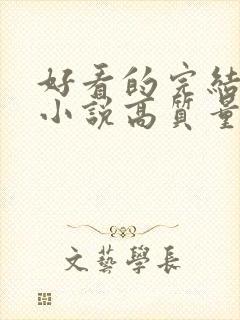 好看的完結
小說高質量
文藝學長